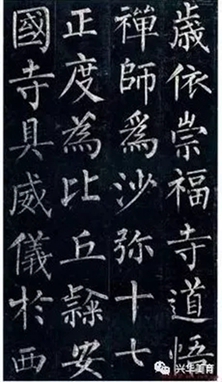 歳依崇福寺道悟
禅師為沙弥十七
正度為比丘隷安
國寺具威儀於西
兴华美育